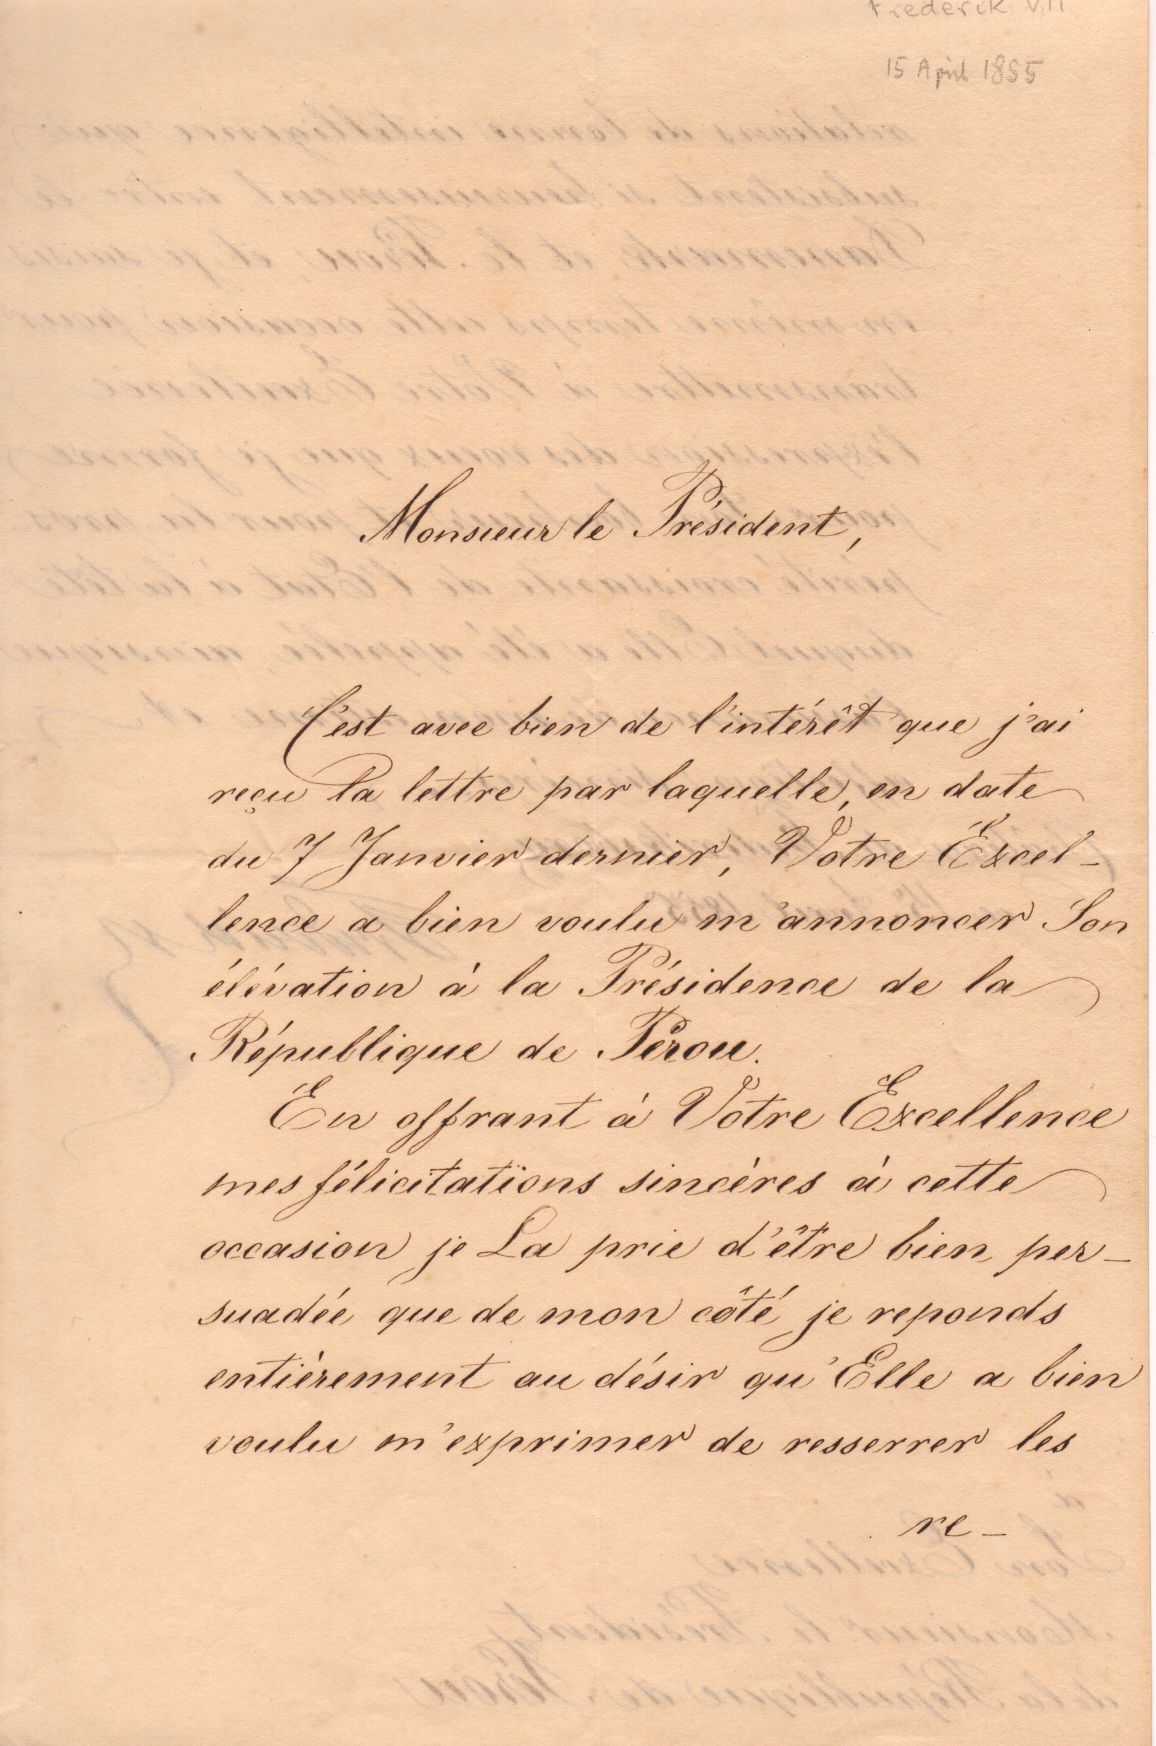 Frederik VII
15 April 1855
Monsieur le Président,
C'est avec bien de l'intérêt que j'ai
reçu la lettre par laquelle, en date
du 7 Janvier dernier, Votre Excel-
lence a bien voulu m'annoncer Son
élévation à la Présidence de la
République de Pérou.
En offrant à Votre Excellence
mes félicitations sincères à cette
occasion je La prie d'être bien per-
suadée que de mon côté je reponds
entièrement au désir qu'Elle a bien
voulu m'exprimer de resserrer les
re-